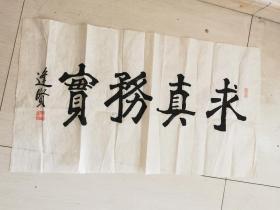 求真務實
達賢